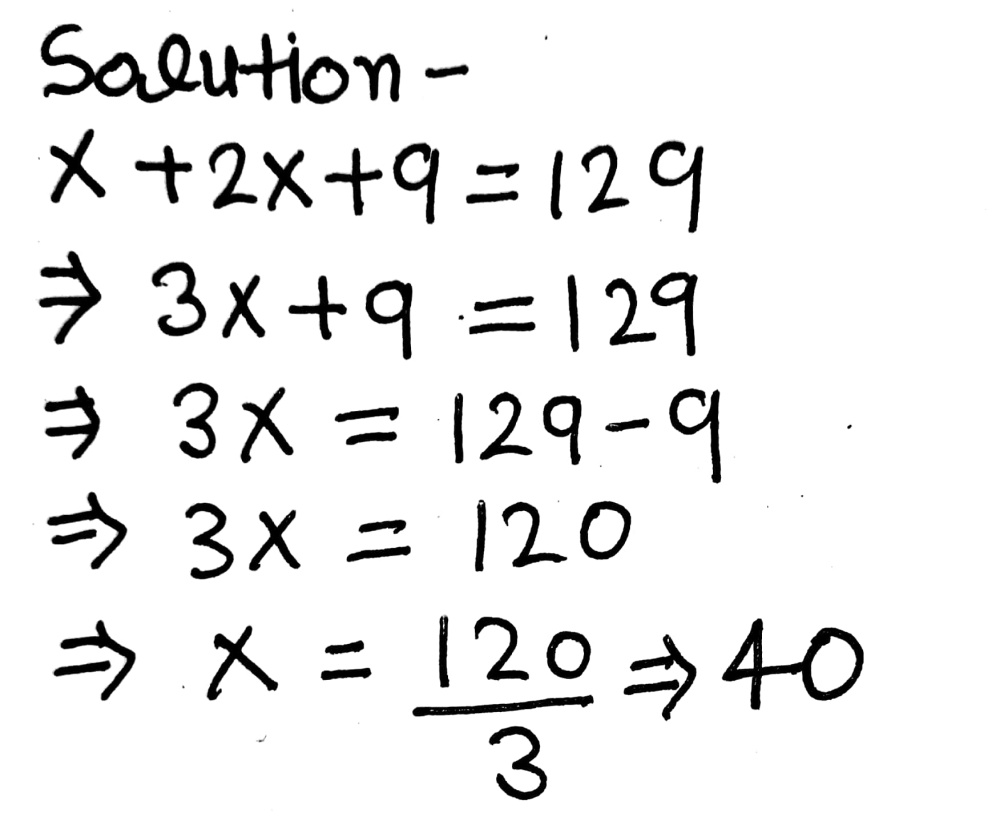 Solution -
x + 2x + 9 = 129
⇒ 3x + 9 = 129
⇒ 3x = 129 - 9
⇒ 3x = 120
⇒ x = 120/3 ⇒ 40